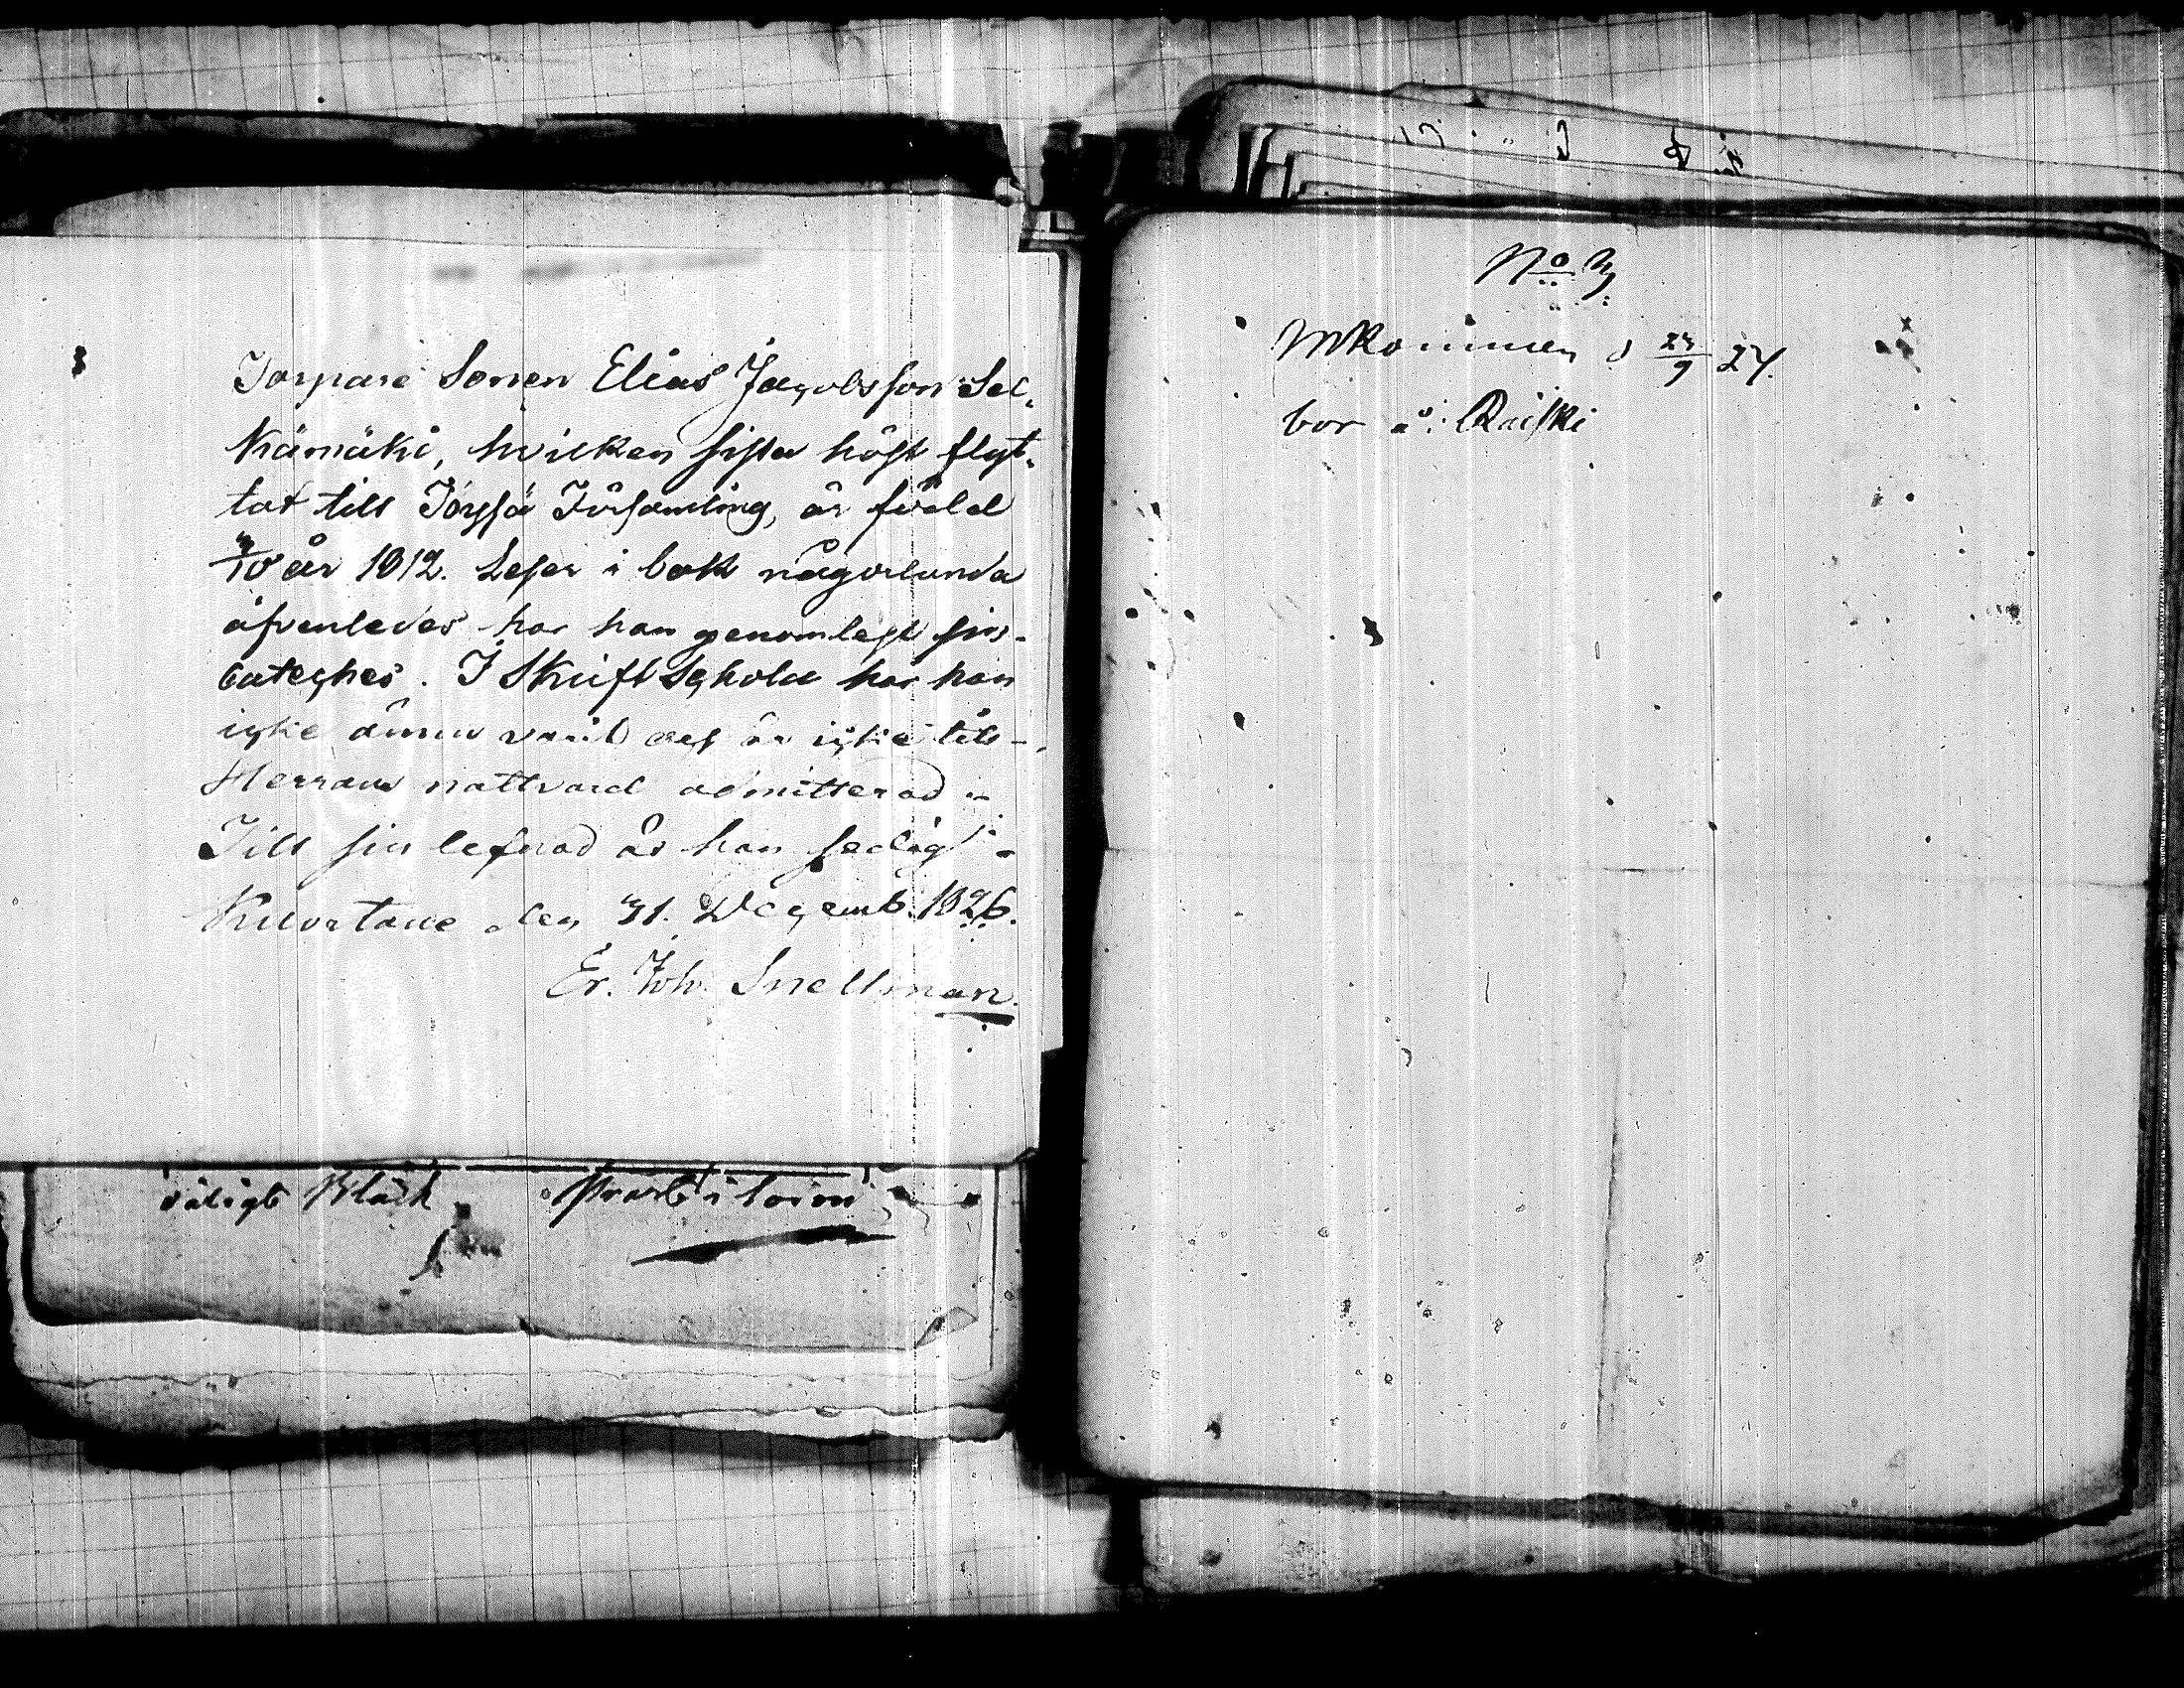 Torpare Sonen Elias Jacobsson Sel,
kämäki, hvilken sista höst flyt,
tat till Församling, är född
3/10 år 1812. Leser i bok någorlunda
äfvenledes har han genomlest sin
cateches. I Skrift Schola har han
icke ännu varit och är icke till
Herrans nattvard admitterad
Till sin lefnad är han sedig
Kuortane den 31. Decemb. 1826.
Er. Joh. Snellman.
dåligt Bläck
No 3
Inkommen d 23/9 27.
bor å: Raiski